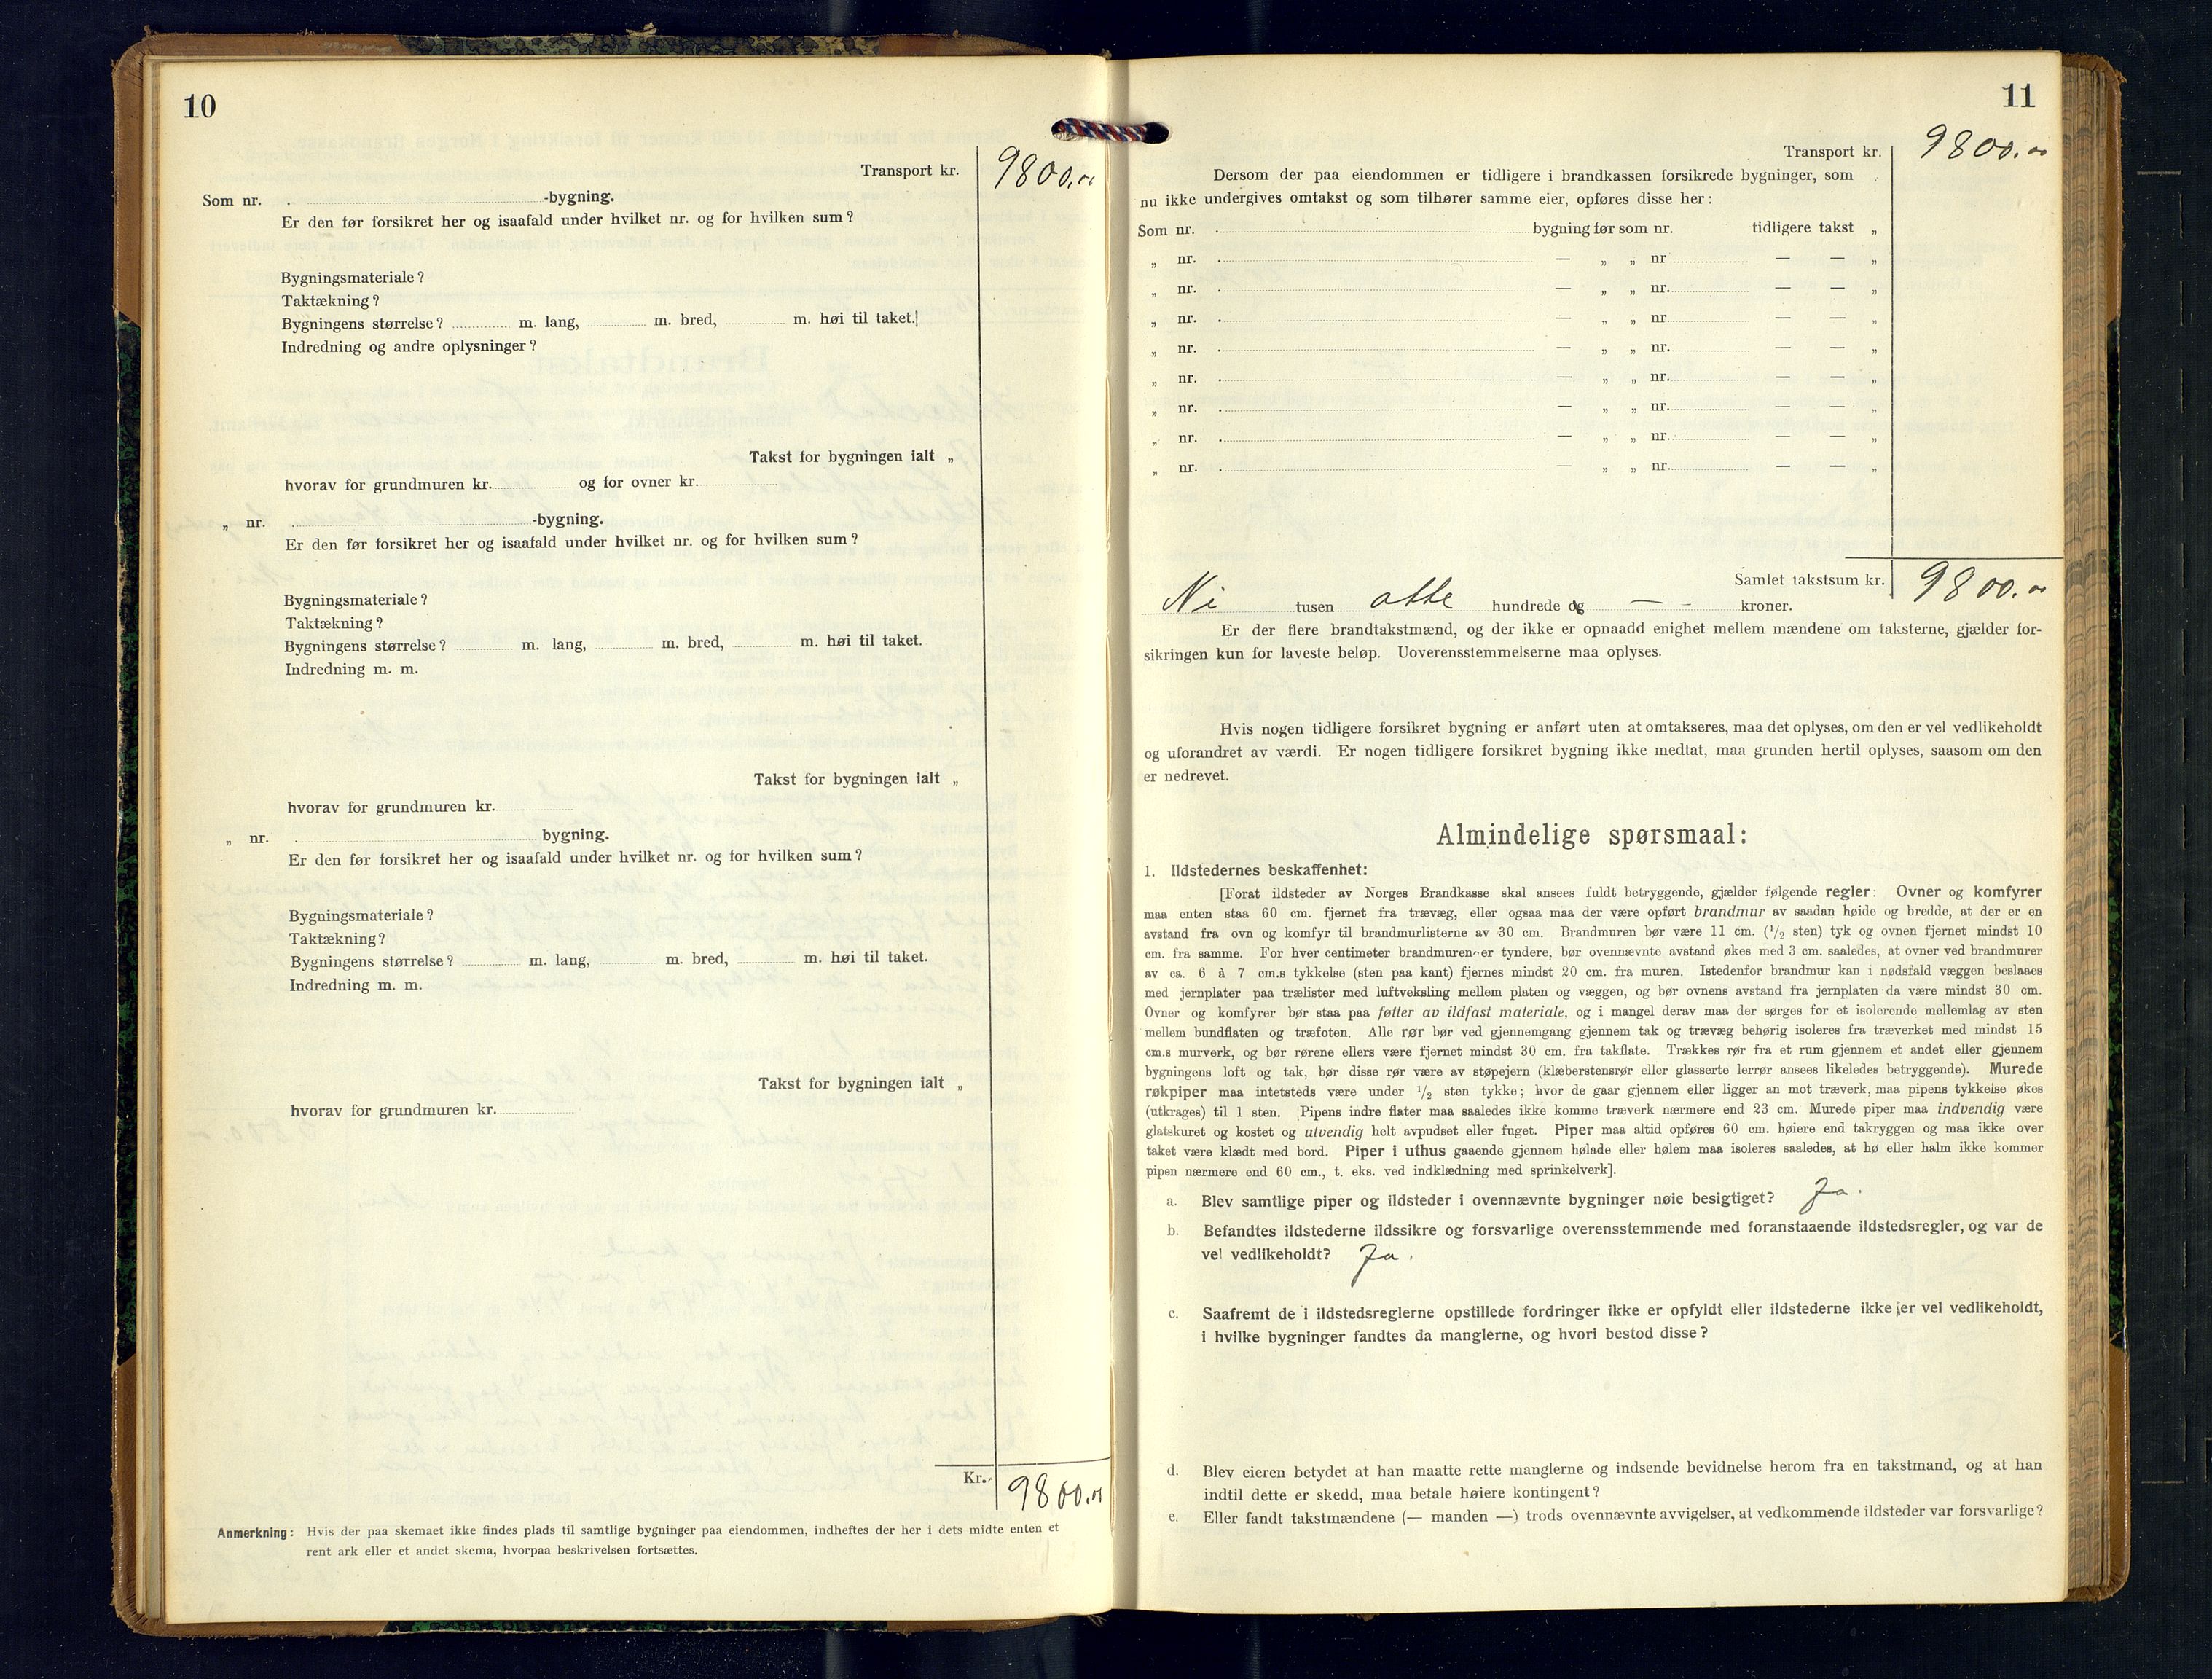 10
Transport kr. 9800,00
Som nr. -bygning.
Er den før forsikret her og isaafald under hvilket nr. og for hvilken sum?
Bygningsmateriale?
Taktækning?
Bygningens størrelse? m. lang, m. bred, m. høi til taket.
Indredning og andre oplysninger?
Takst for bygningen ialt „
hvorav for grundmuren kr. og for ovner kr.
„ nr. -bygning.
Er den før forsikret her og isaafald under hvilket nr. og for hvilken sum?
Bygningsmateriale?
Taktækning?
Bygningens størrelse? m. lang, m. bred, m. høi til taket.
Indredning m. m.
Takst for bygningen ialt „
hvorav for grundmuren kr.
„ nr. bygning.
Er den før forsikret her og isaafald under hvilket nr. og for hvilken sum?
Bygningsmateriale?
Taktækning?
Bygningens størrelse? m. lang, m. bred, m. høi til taket.
Indredning m. m.
Takst for bygningen ialt „
hvorav for grundmuren kr.
Kr. 9800,00
Anmerkning: Hvis der paa skemaet ikke findes plads til samtlige bygninger paa eiendommen, indheftes der her i dets midte enten et
rent ark eller et andet skema, hvorpaa beskrivelsen fortsættes.
11
Transport kr. 9800,00
Dersom der paa eiendommen er tidligere i brandkassen forsikrede bygninger, som
nu ikke undergives omtakst og som tilhører samme eier, opføres disse her:
Som nr. bygning før som nr. tidligere takst „
„ nr. — „ „ nr — — „
„ nr. — „ „ nr. — — „
„ nr. — „ „ nr. — — „
„ nr. — „ „ nr. — — „
„ nr. — „ „ nr. — — „
„ nr. — „ „ nr. — — „
„ nr. — „ „ nr. — — „
„ nr. — „ „ nr. — — „
Samlet takstsum kr. 9800,00
Ni tusen otte hundrede og — - kroner.
Er der flere brandtakstmænd, og der ikke er opnaadd enighet mellem mændene om taksterne, gjælder for-
sikringen kun for laveste beløp. Uoverensstemmelserne maa oplyses.
Hvis nogen tidligere forsikret bygning er anført uten at omtakseres, maa det oplyses, om den er vel vedlikeholdt
og uforandret av værdi. Er nogen tidligere forsikret bygning ikke medtat, maa grunden hertil oplyses, saasom om den
er nedrevet.
Almindelige spørsmaal:
1. Ildstedernes beskaffenhet:
[Forat ildsteder av Norges Brandkasse skal ansees fuldt betryggende, gjælder følgende regler: Ovner og komfyrer
maa enten staa 60 cm. fjernet fra trævæg, eller ogsaa maa der være opført brandmur av saadan høide og bredde, at der er en
avstand fra ovn og komfyr til brandmurlisterne av 30 cm. Brandmuren bør være 11 cm. (1/2 sten) tyk og ovnen fjernet mindst 10
cm. fra samme. For hver centimeter brandmuren er tyndere, bør ovennævnte avstand økes med 3 cm. saaledes, at ovner ved brandmurer
av ca. 6 à 7 cm.s tykkelse (sten paa kant) fjernes mindst 20 cm. fra muren. Istedenfor brandmur kan i nødsfald væggen beslaaes
med jernplater paa trælister med luftveksling mellem platen og væggen, og bør ovnens avstand fra jernplaten da være mindst 30 cm.
Ovner og komfyrer bør staa paa føtter av ildfast materiale, og i mangel derav maa der sørges for et isolerende mellemlag av sten
mellem bundflaten og træfoten. Alle rør bør ved gjennemgang gjennem tak og trævæg behørig isoleres fra træverket med mindst 15
cm.s murverk, og bør rørene ellers være fjernet mindst 30 cm. fra takflate. Trækkes rør fra et rum gjennem et andet eller gjennem
bygningens loft og tak, bør disse rør være av støpejern (klæberstensrør eller glasserte lerrør ansees likeledes betryggende). Murede
røkpiper maa intetsteds være under 1/2 sten tykke; hvor de gaar gjennem eller ligger an mot træverk, maa pipens tykkelse økes
(utkrages) til 1 sten. Pipens indre flater maa saaledes ikke komme træverk nærmere end 23 cm. Murede piper maa indvendig være
glatskuret og kostet og utvendig helt avpudset eller fuget. Piper maa altid opføres 60 cm. høiere end takryggen og maa ikke over
taket være klædt med bord. Piper i uthus gaaende gjennem hølade eller hølem maa isoleres saaledes, at hø eller halm ikke kommer
pipen nærmere end 60 cm., t. eks. ved indklædning med sprinkelverk].
a. Blev samtlige piper og ildsteder i ovennævnte bygninger nøie besigtiget? Ja.
b. Befandtes ildstederne ildssikre og forsvarlige overensstemmende med foranstaaende ildstedsregler, og var de
vel vedlikeholdt? Ja.
c. Saafremt de i ildstedsreglerne opstillede fordringer ikke er opfyldt eller ildstederne ikke er vel vedlikeholdt,
i hvilke bygninger fandtes da manglerne, og hvori bestod disse?
d. Blev eieren betydet at han maatte rette manglerne og indsende bevidnelse herom fra en takstmand, og at han
indtil dette er skedd, maa betale høiere kontingent?
e. Eller fandt takstmændene (— manden —) trods ovennævnte avvigelser, at vedkommende ildsteder var forsvarlige?